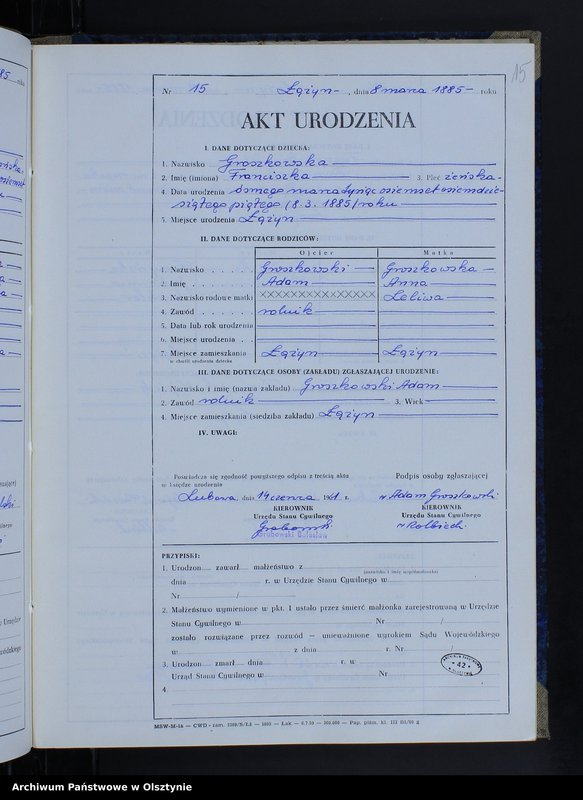 15
Nr 15 Łążyn – , dnia 8 marca 1885 – roku
AKT URODZENIA
I. DANE DOTYCZĄCE DZIECKA:
1. Nazwisko Groszkowska
2. Imię (imiona) Franciszka 3. Płeć żeńska.
4. Data urodzenia ósmego marca tysiąc osiemset osiemdzie-
siątego piątego (8.3.1885) roku
5. Miejsce urodzenia Łążyn
II. DANE DOTYCZĄCE RODZICÓW:
Ojciec Matka
1. Nazwisko Groszkowski Groszkowska
2. Imię Adam Anna
3. Nazwisko rodowe matki XXXXXXXXXXXXX Leliwa
4. Zawód rolnik
5. Data lub rok urodzenia
6. Miejsce urodzenia
7. Miejsce zamieszkania Łążyn Łążyn
w chwili urodzenia dziecka
III. DANE DOTYCZĄCE OSOBY (ZAKŁADU) ZGŁASZAJĄCEJ URODZENIE:
1. Nazwisko i imię (nazwa zakładu) Groszkowski Adam
2. Zawód rolnik 3. Wiek
4. Miejsce zamieszkania (siedziba zakładu) Łążyn
IV. UWAGI:
Poświadcza się zgodność powyższego odpisu z treścią aktu
w księdze urodzenia
Podpis osoby zgłaszającej
Lubawa, dnia 14 czerwca 1961 r.
Adam Groszkowski
KIEROWNIK
Urzędu Stanu Cywilnego
KIEROWNIK
Urzędu Stanu Cywilnego
Grabowski
Grabowski Bolesław
PRZYPISKI:
1. Urodzon zawarł małżeństwo z
(nazwisko i imię współmałżonka)
dnia r. w Urzędzie Stanu Cywilnego w
Nr /
2. Małżeństwo wymienione w pkt. 1 ustało przez śmierć małżonka zarejestrowaną w Urzędzie
Stanu Cywilnego w Nr /
zostało rozwiązane przez rozwód – unieważnione wyrokiem Sądu Wojewódzkiego
w z dnia r. Nr
3. Urodzon zmarł dnia r. w
Urząd Stanu Cywilnego w Nr
42
4.
Archiwum Państwowe w Olsztynie